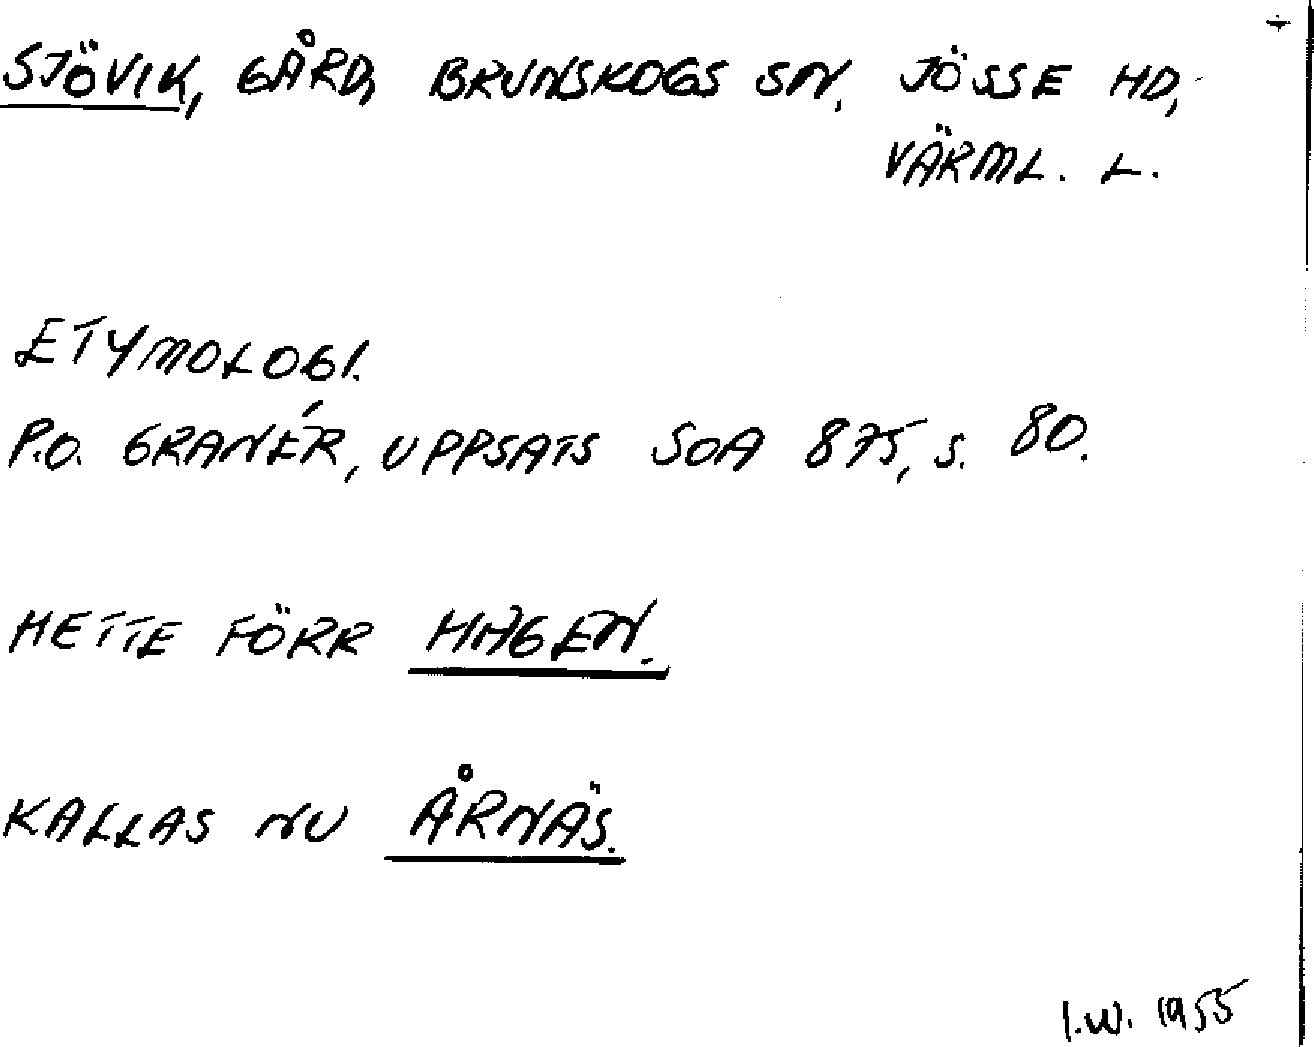 SJÖVIK, GÅRD, BRUNSKOGS SN, JÖSSE HD,
VÄRML. L.
ETYMOLOGI.
P.O. GRANÉR, UPPSATS SOA 875, S. 80.
HETTE FÖRR HAGEN.
KALLAS NU ÅRNÄS.
I.W. 1955